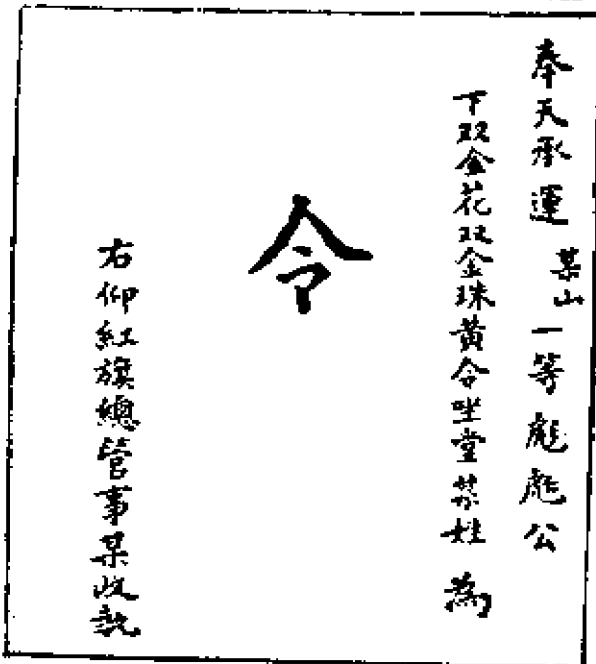 奉天承運 某山 一等彪彪公
下双金花双金珠黄令坐堂某姓 為
令
右仰紅旗總管事某收執